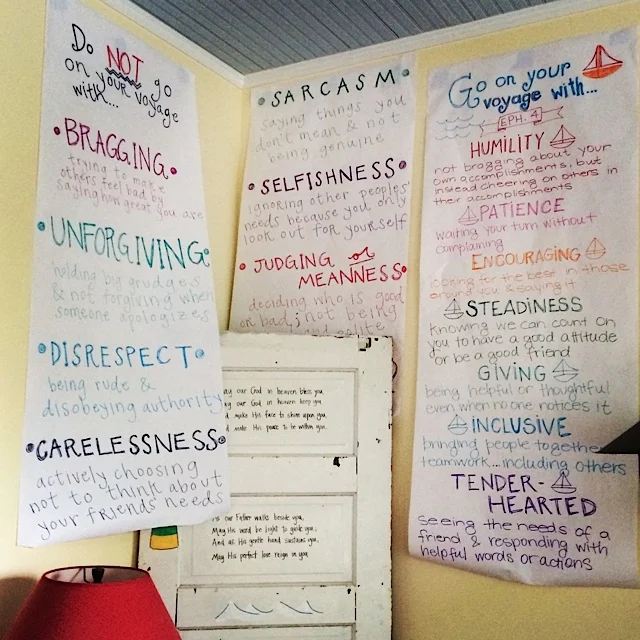 Do NOT go
on your voyage
with...
BRAGGING
trying to make
others feel bad by
saying how great you are
UNFORGIVING
holding big grudges
& not forgiving when
someone apologizes
DISRESPECT
being rude &
disobeying authority
CARELESSNESS
actively choosing
not to think about
your friends needs
SARCASM
saying things you
don't mean & not
being genuine
SELFISHNESS
ignoring other peoples'
needs because you only
look out for yourself
JUDGING or
MEANNESS
deciding who is good
or bad; not being
Go on your
voyage with...
EPH. 4
HUMILITY
not bragging about your
own accomplishments, but
instead cheering on others in
their accomplishments
PATIENCE
waiting your turn without
complaining
ENCOURAGING
looking for the best in those
around you & saying it
STEADINESS
Knowing we can count on
you to have a good attitude
or be a good friend
GIVING
being helpful or thoughtful
even when no one notices it
INCLUSIVE
bringing people together
teamwork...including others
TENDER-
HEARTED
seeing the needs of a
friend & responding with
helpful words or actions
our God in heaven bless you
our God in heaven keep you
make His face to shine upon you,
make His peace to be within you.
our Father walk beside you,
May His word be light to guide you,
And as His gentle hand sustains you,
May His perfect love reign in you.